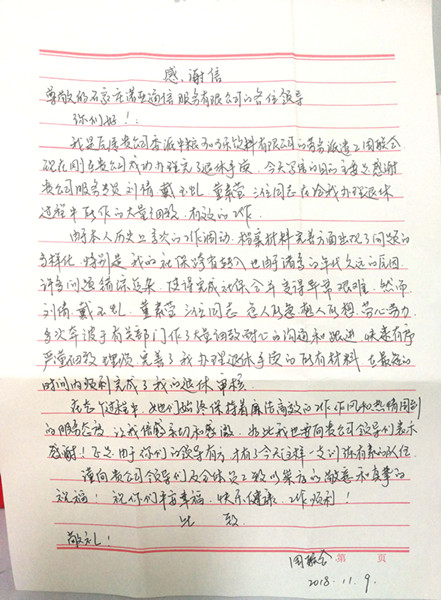 感谢信
尊敬的石家庄诺亚通信服务有限公司的各位领导
你们好！
我是原贵公司委派中粮可口可乐饮料有限公司的劳务派遣工周
现在刚在贵公司成功办理完了退休手续，今天写信的目的主要是感谢
贵公司服务专员刘倩 戴 董素萱 三位同志在给我办理退休
过程中所作的大量细致、有效的工作。
由于本人历史上多次的工作调动，档案材料完善方面出现了问题的
多样化，特别是我的社保跨省转入也由于诸多的年代久远的原因
许多问题铺怀而来，使得完成社保合并变得非常艰难，然而
刘倩 戴 董素萱 三位同志急人所急想人所想，劳心劳力
多次奔波于有关部门作了大量细致耐心的沟通和跟进，快速有序
严谨细致 完善了我办理退休手续的所有材料，在最短的
时间内顺利完成了我的退休审核。
在整个过程中，她们始终保持着廉洁高效的工作作风和热情周到
的服务态度，让我倍感亲切和感激，为此我也要向贵公司领导们表示
感谢！正是由于你们的领导有方，才有了今天这样一支训练有素的队伍。
谨向贵公司领导们及全体员工致以崇高的敬意和真挚的
祝福！祝你们平安幸福、快乐健康、工作顺利！
此致
敬礼！
周
第 页
2018.11.9.